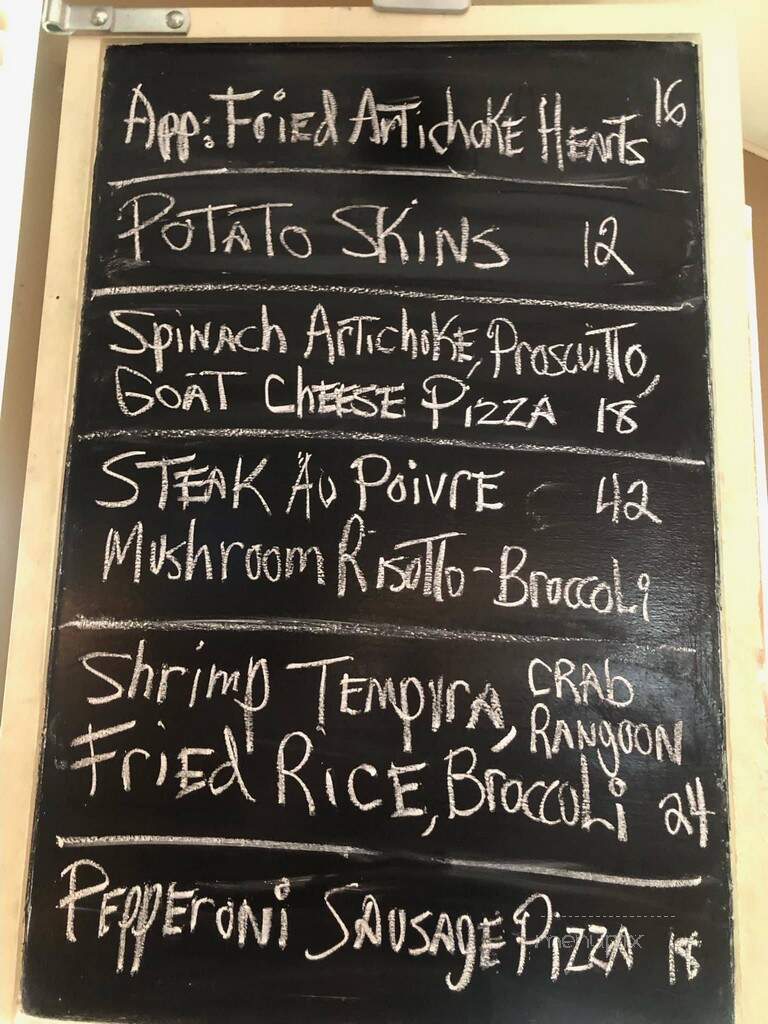 App: Fried Artichoke Hearts 16
Potato Skins 12
Spinach Artichoke, Proscuitto,
Goat Cheese Pizza 18
Steak Au Poivre 42
Mushroom Risotto - Broccoli
Shrimp Tempura, Crab
Rangoon
Fried Rice, Broccoli 24
Pepperoni Sausage Pizza 18
menupix